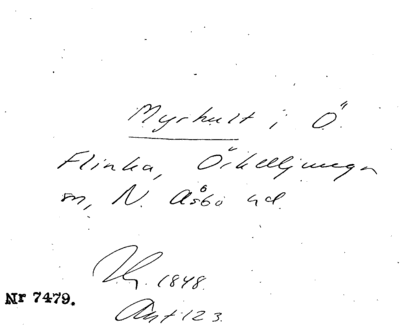 Myrhult i Ö
Flinka, Örkelljunga
sn, N. Åsbo hd.
1848.
Akt 123.
Nr 7479.